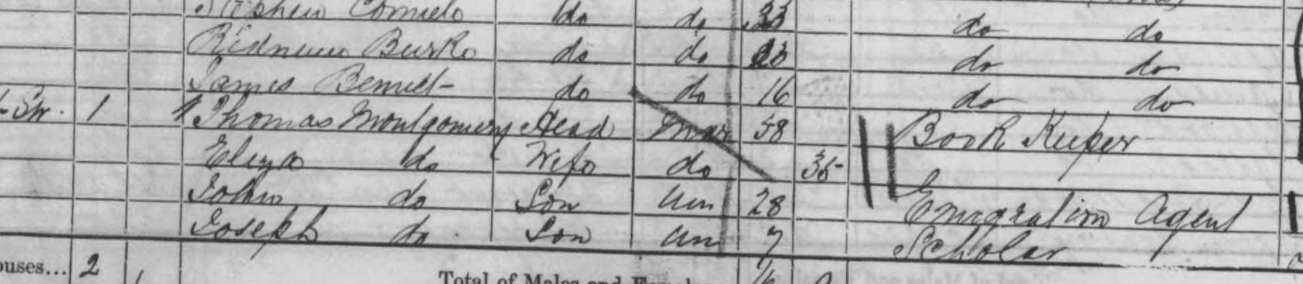 do do 33 do do
Burke do do 23 do do
James Bennett do do 16 do do
Str. 1 Thomas Montgomery Head Mar 58 Book Keeper
Eliza do Wife do 35
John do Son Un 28 Emigration Agent
Joseph do Son Un 7 Scholar
ouses... 2 Total of Males and Females 16